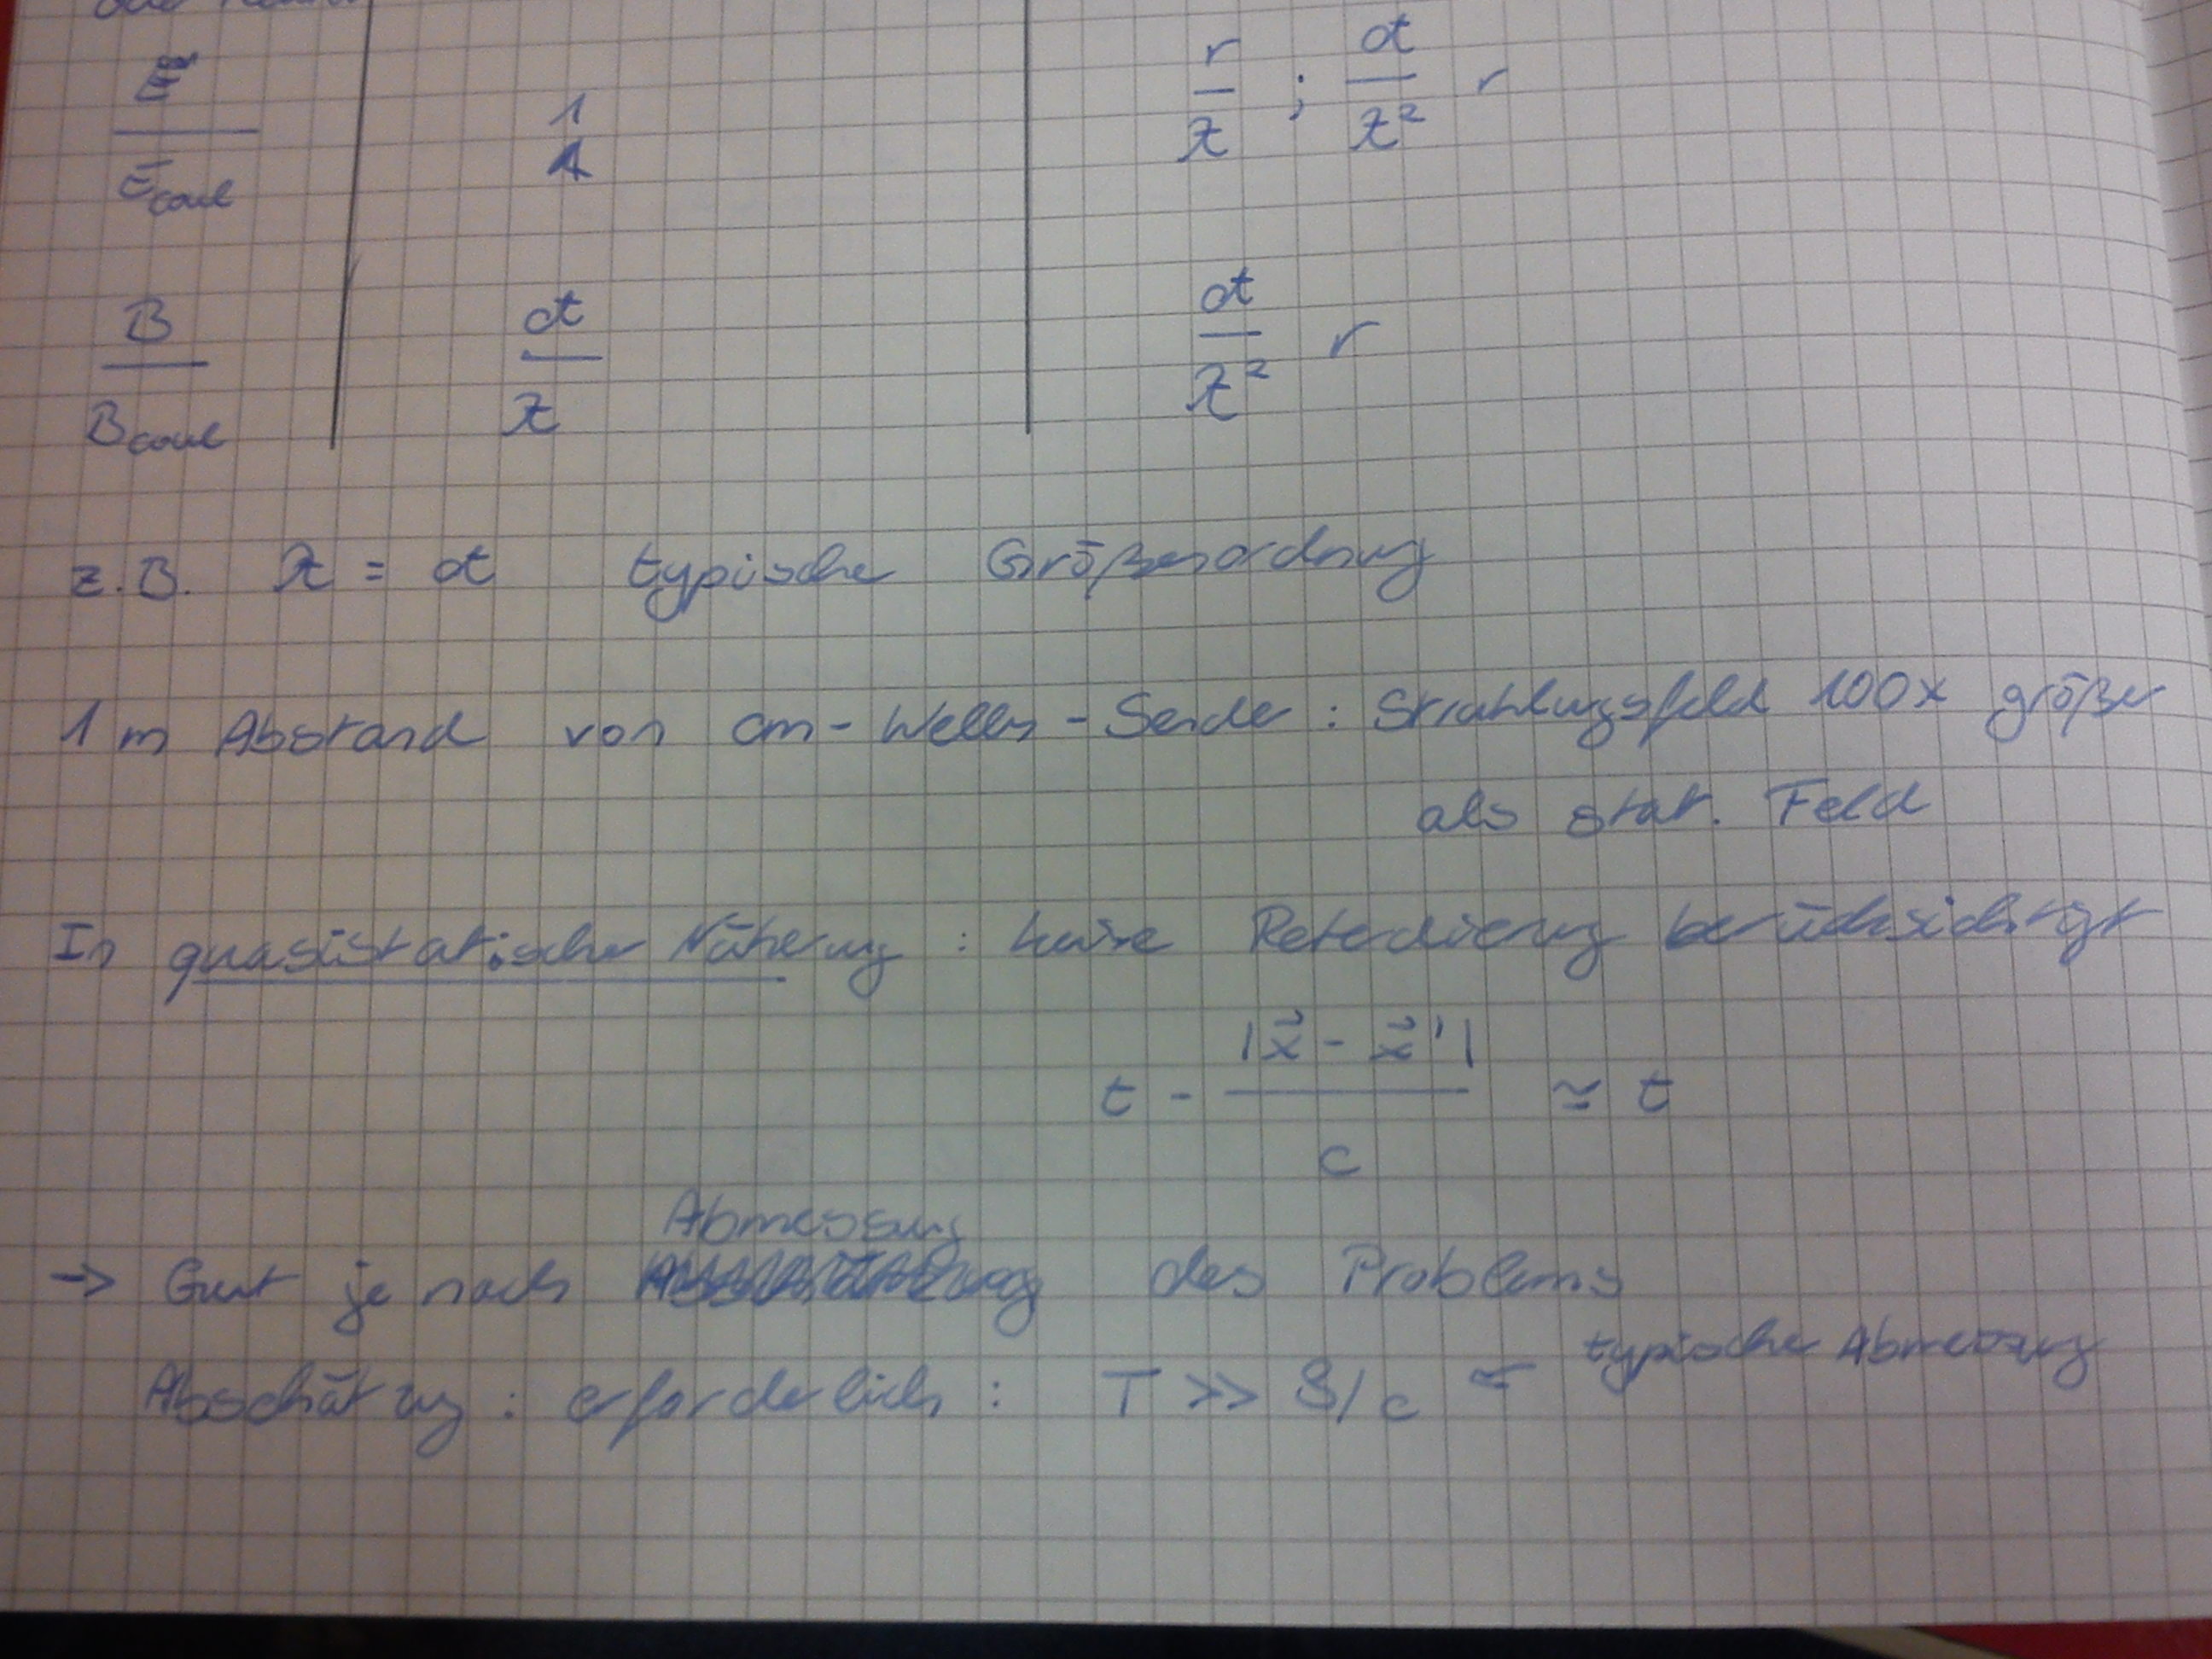 E / E_coul | 1 | r/ƛ ; d/ƛ² r
B / B_coul | d/ƛ | d/ƛ² r
z.B. ƛ = d typische Größenordnung
1 m Abstand von cm-Wellen-Sender : Strahlungsfeld 100x größer
als stat. Feld
In quasistatischer Näherung : keine Retardierung berücksichtigt
t - |x⃗ - x⃗'| / c ≃ t
→ Gut je nach Abmessung des Problems
Abschätzung : erforderlich : T >> S/c ← typische Abmessung